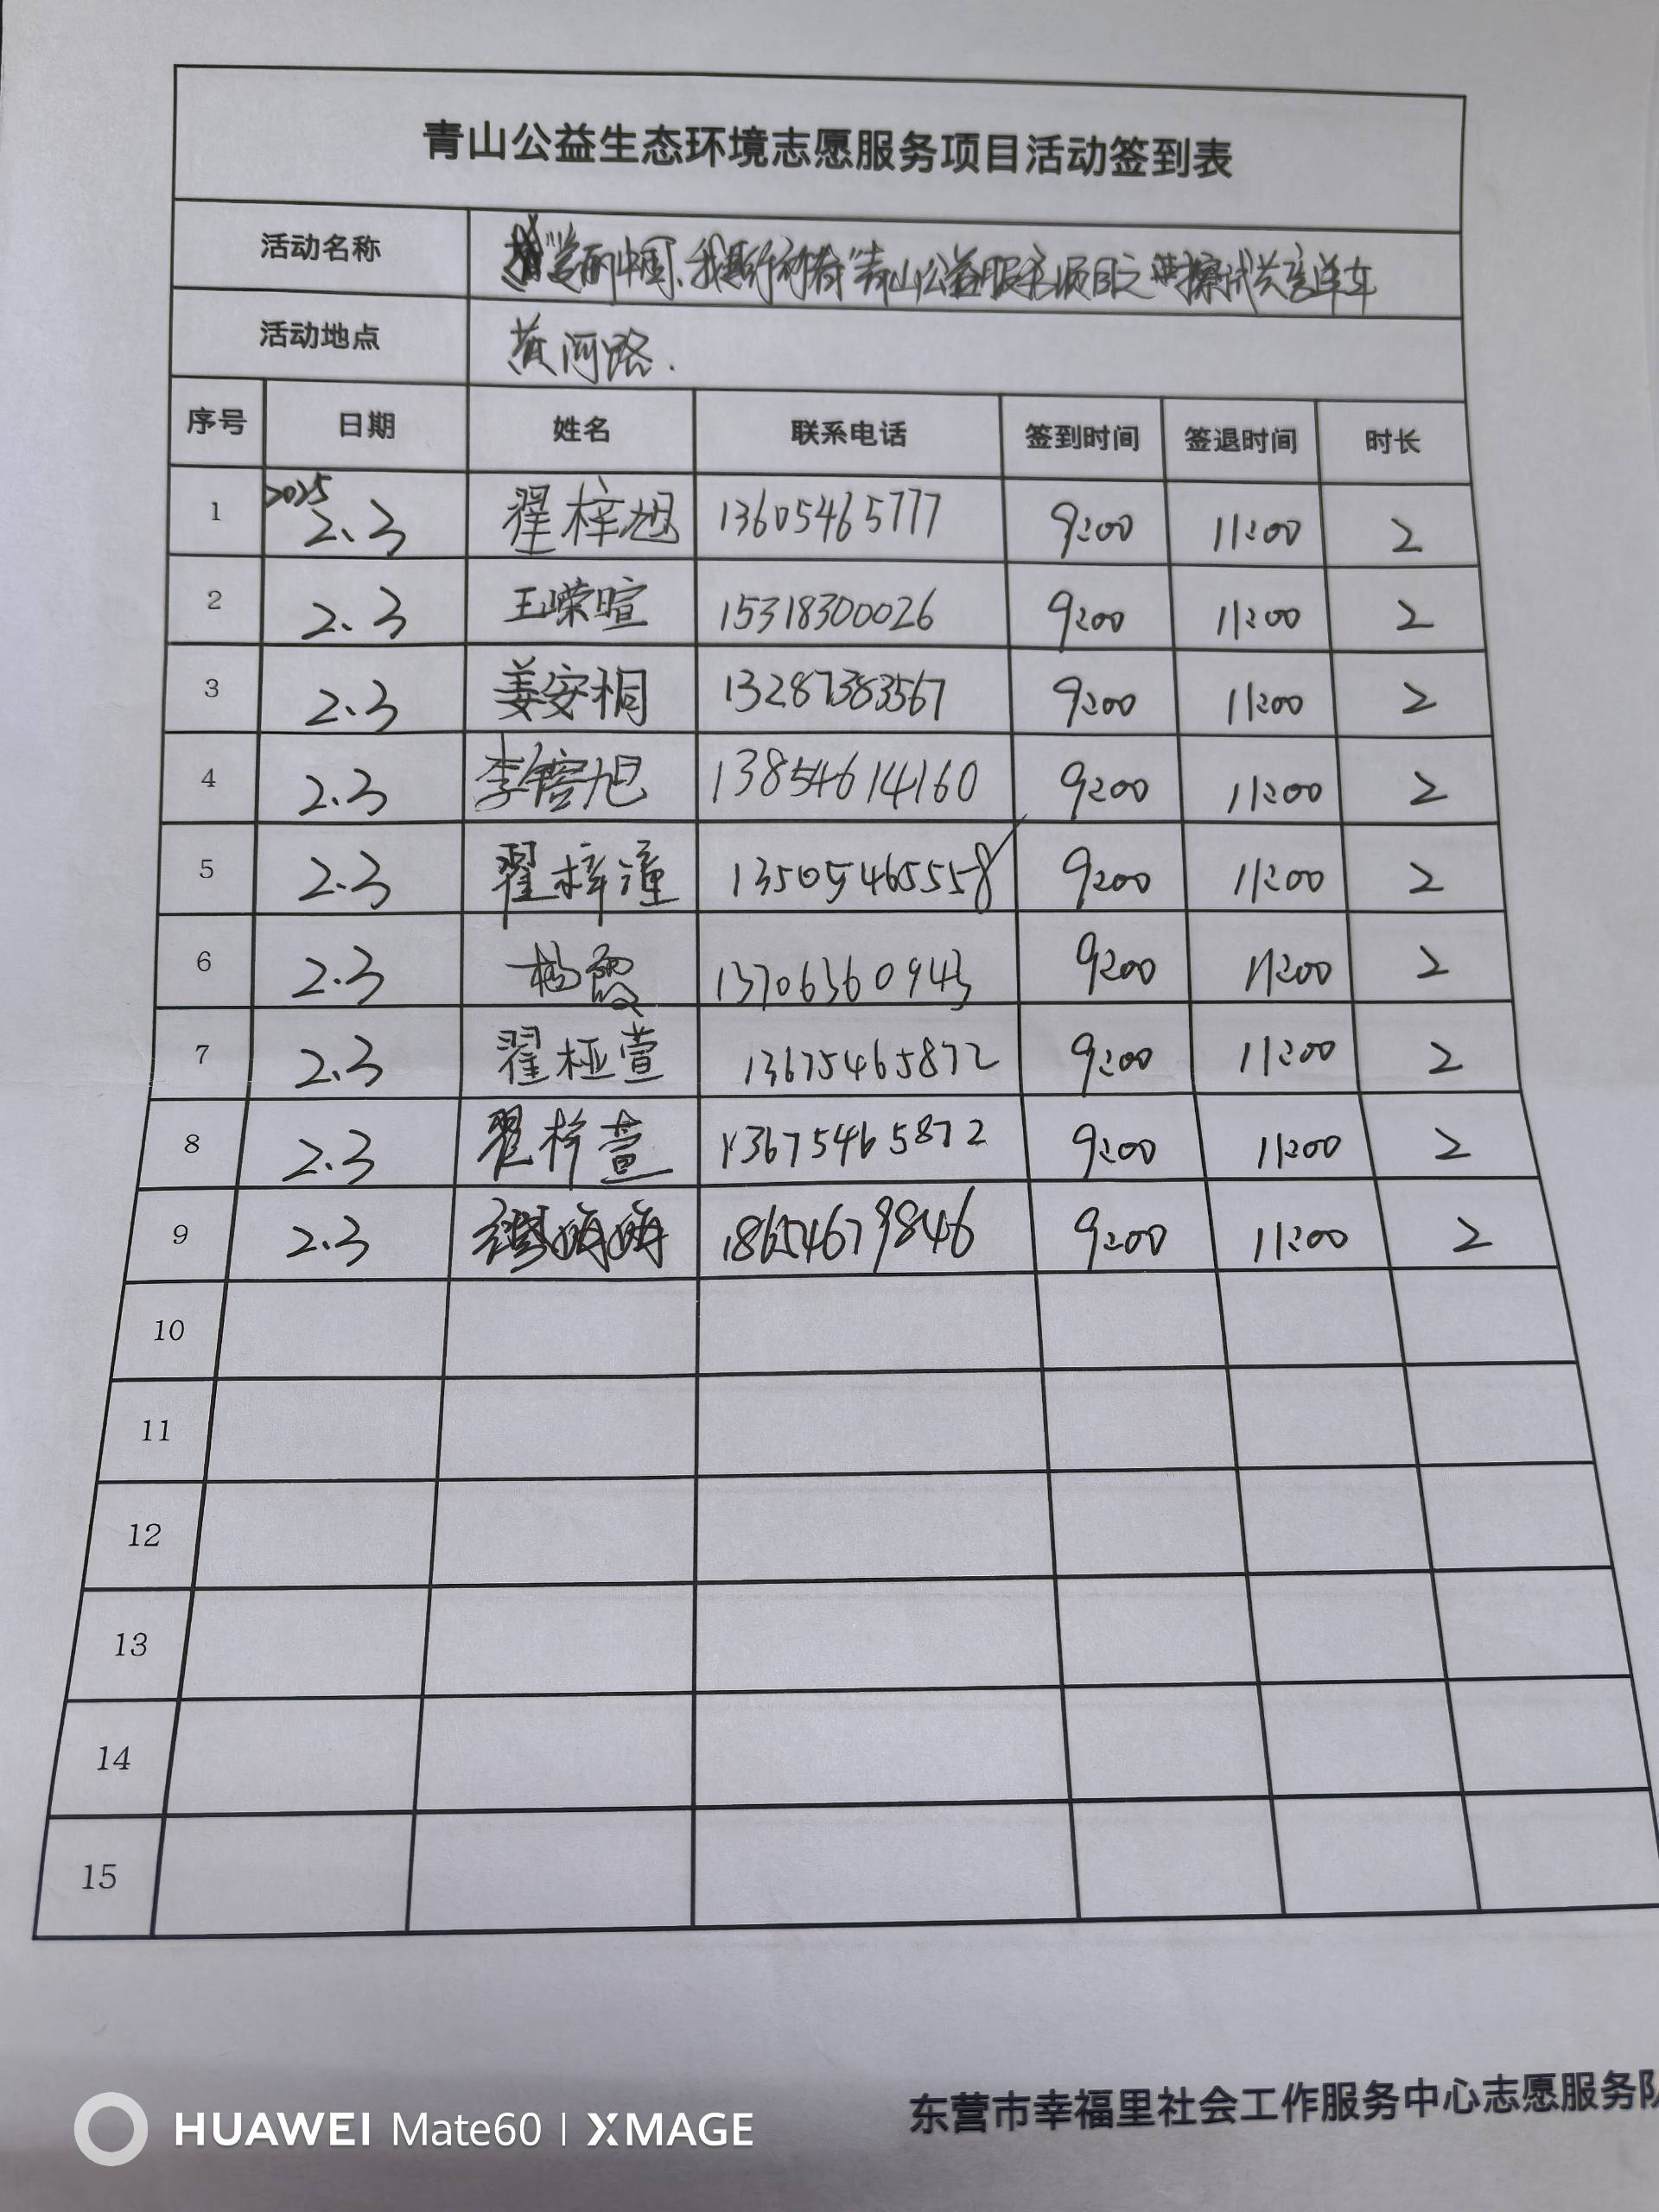 青山公益生态环境志愿服务项目活动签到表
活动名称 "美丽中国,我是行动者"青山公益服务项目之 擦试共享单车
活动地点 黄河路.
序号 日期 姓名 联系电话 签到时间 签退时间 时长
1 2025 2、3 翟梓旭 13605465777 9:00 11:00 2
2 2、3 王嵘暄 15318300026 9:00 11:00 2
3 2.3 姜安桐 13287383567 9:00 11:00 2
4 2.3 李镕旭 13854614160 9:00 11:00 2
5 2.3 翟梓潼 13505465558 9:00 11:00 2
6 2.3 杨霞 13706360943 9:00 11:00 2
7 2.3 翟桠萱 13675465872 9:00 11:00 2
8 2.3 翟梓萱 13675465872 9:00 11:00 2
9 2.3 18654679846 9:00 11:00 2
10
11
12
13
14
15
东营市幸福里社会工作服务中心志愿服务队
HUAWEI Mate60 | XMAGE